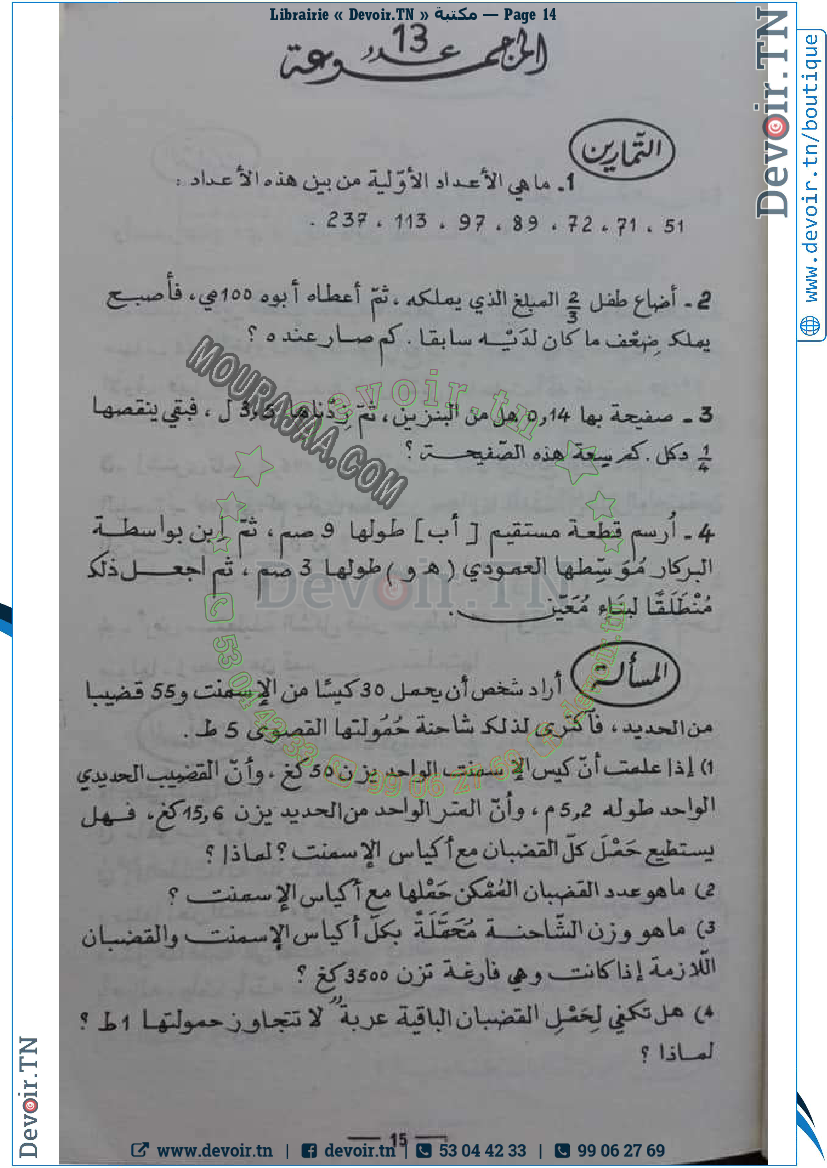 Librairie « Devoir.TN » مكتبة — Page 14
المجموعة عدد 13
التمارين
1. ما هي الأعداد الأوّلية من بين هذه الأعداد :
51 ، 71 ، 72 ، 89 ، 97 ، 113 ، 237 .
2 - أضاع طفل 2/3 المبلغ الذي يملكه ، ثمّ أعطاه أبوه 100مي ، فأصبح
يملك ضِعْف ما كان لدَيْه سابقا . كم صار عنده ؟
3 - صفيحة بها 0,14 هل من البنزين ، ثمّ زِدْناها 3,5 ل ، فبقي ينقصها
1/4 دكل . كم سعة هذه الصّفيحة ؟
4 - اُرسم قطعة مستقيم [ أب ] طولها 9 صم ، ثمّ اِبن بواسطة
البركار مُوَسِّطها العمودي ( هـ و ) طولها 3 صم ، ثم اجعل ذلك
مُنْطَلَقًا لبناء مُعَيّن .
المسألة
أراد شخص أن يحمل 30 كيسًا من الإسمنت و 55 قضيبا
من الحديد ، فاكترى لذلك شاحنة حُمُولتها القصوى 5 ط .
1) إذا علمت أنّ كيس الإسمنت الواحد يزن 50 كغ ، وأنّ القضيب الحديدي
الواحد طوله 5,2 م ، وأنّ المتر الواحد من الحديد يزن 15,6 كغ ، فهل
يستطيع حَمْلَ كلّ القضبان مع أكياس الإسمنت ؟ لماذا ؟
2) ما هو عدد القضبان المُمْكن حَمْلها مع أكياس الإسمنت ؟
3) ما هو وزن الشّاحنة مُحَمَّلَةً بكلّ أكياس الإسمنت والقضبان
اللّازمة إذا كانت وهي فارغة تزن 3500 كغ ؟
4) هل تكفي لِحَمْلِ القضبان الباقية عربة" لا تتجاوز حمولتها 1 ط ؟
لماذا ؟
15
MOURAJAA.COM
devoir.tn
Devoir.TN
53 04 42 33
99 06 27 69
devoir.tn
Devoir.TN
www.devoir.tn/boutique
Devoir.TN
www.devoir.tn | devoir.tn | 53 04 42 33 | 99 06 27 69